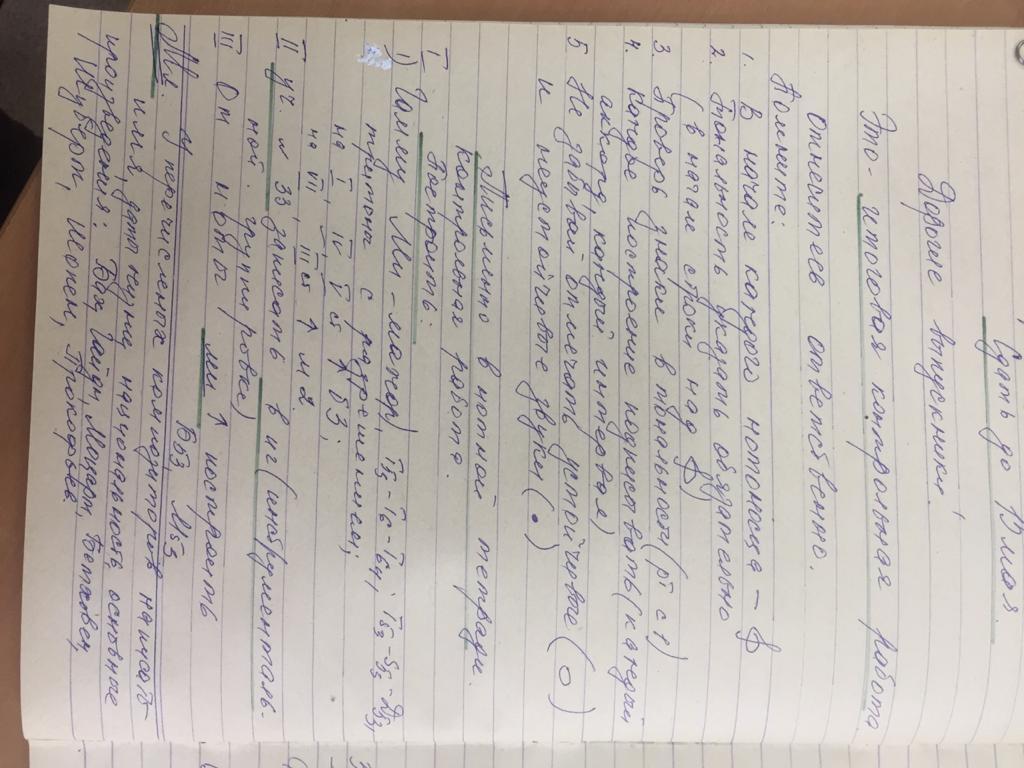 Сдать до 8 мая.
Дорогие выпускники!
Это - итоговая контрольная работа
Отнеситесь ответственно.
Помните:
1. В начале каждого нотоносца -
2. Тональность указать обязательно
(в начале строки над
3. Проверь знаки в тональности
4. Каждое построение подписывать (каждый
аккорд, каждый интервал)
5 Не забывай отмечать устойчивые (○)
и неустойчивые звуки (•)
Письменно в нотной тетради.
Контрольная работа.
I Построить:
1) Гамму Ми-мажор, T₃-T₆-T₆₄; T₅₃-S₅₃-D₅₃,
тритоны с разрешением;
на I, IV, V ст ↑ б3;
на VII, III ст ↑ м2.
II Уч. № 33 записать в иг (инструменталь-
ной группировке)
III От ноты ми ↑ построить
Б⁵₃ М⁵₃
Мл. У перечисленных композиторов написать
имя, дату, национальность, основные
произведения: Бах, Гайдн, Моцарт, Бетховен,
Шуберт, Шопен, Прокофьев